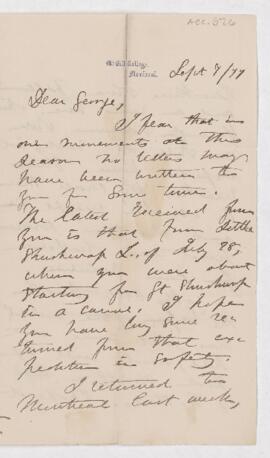 Acc. 526
McGill College,
Montreal.
Sept 7/77
Dear George,
I fear that in
our movements at this
season no letters may
have been written to
you for some time.
The latest received from
you is that from Little
Shushwap L. of July 28,
when you were about
starting for Gt Shushwap
in a canoe. I hope
you have long since re
turned from that exc
pedition in safety.
I returned to
Montreal last week,